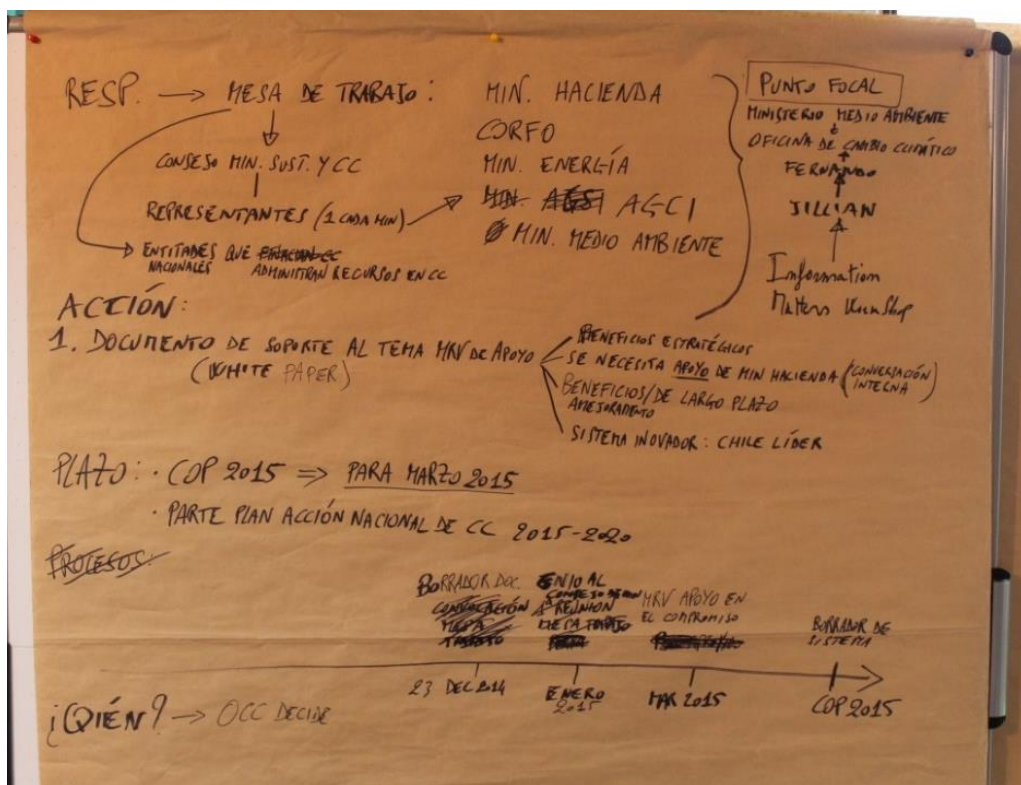 RESP. → MESA DE TRABAJO:
CONSEJO MIN. SUST. Y CC
REPRESENTANTES (1 CADA MIN)
ENTITADES QUE
NACIONALES ADMINISTRAN RECURSOS EN CC
MIN. HACIENDA
CORFO
MIN. ENERGÍA
AGCI
MIN. MEDIO AMBIENTE
PUNTO FOCAL
MINISTERIO MEDIO AMBIENTE
OFICINA DE CAMBIO CLIMÁTICO
FERNANDO
JILLIAN
Information
Matters
ACCIÓN:
1. DOCUMENTO DE SOPORTE AL TEMA MRV DE APOYO
(WHITE PAPER)
BENEFICIOS ESTRATÉGICOS
SE NECESITA APOYO DE MIN HACIENDA (CONVERSACIÓN
INTERNA)
BENEFICIOS/DE LARGO PLAZO
AMEJORAMENTO
SISTEMA INOVADOR: CHILE LÍDER
PLAZO: · COP 2015 => PARA MARZO 2015
· PARTE PLAN ACCIÓN NACIONAL DE CC 2015-2020
PROCESOS:
BORRADOR DOC.
CONVOCACIÓN
MESA
TRABAJO
ENIO AL
REUNION
MESA TRABAJO
MRV APOYO EN
EL COMPROMISO
BORRADOR DE
SISTEMA
23 DEC 2014
ENERO
2015
MAR 2015
COP 2015
¿QIÉN? → OCC DECIDE